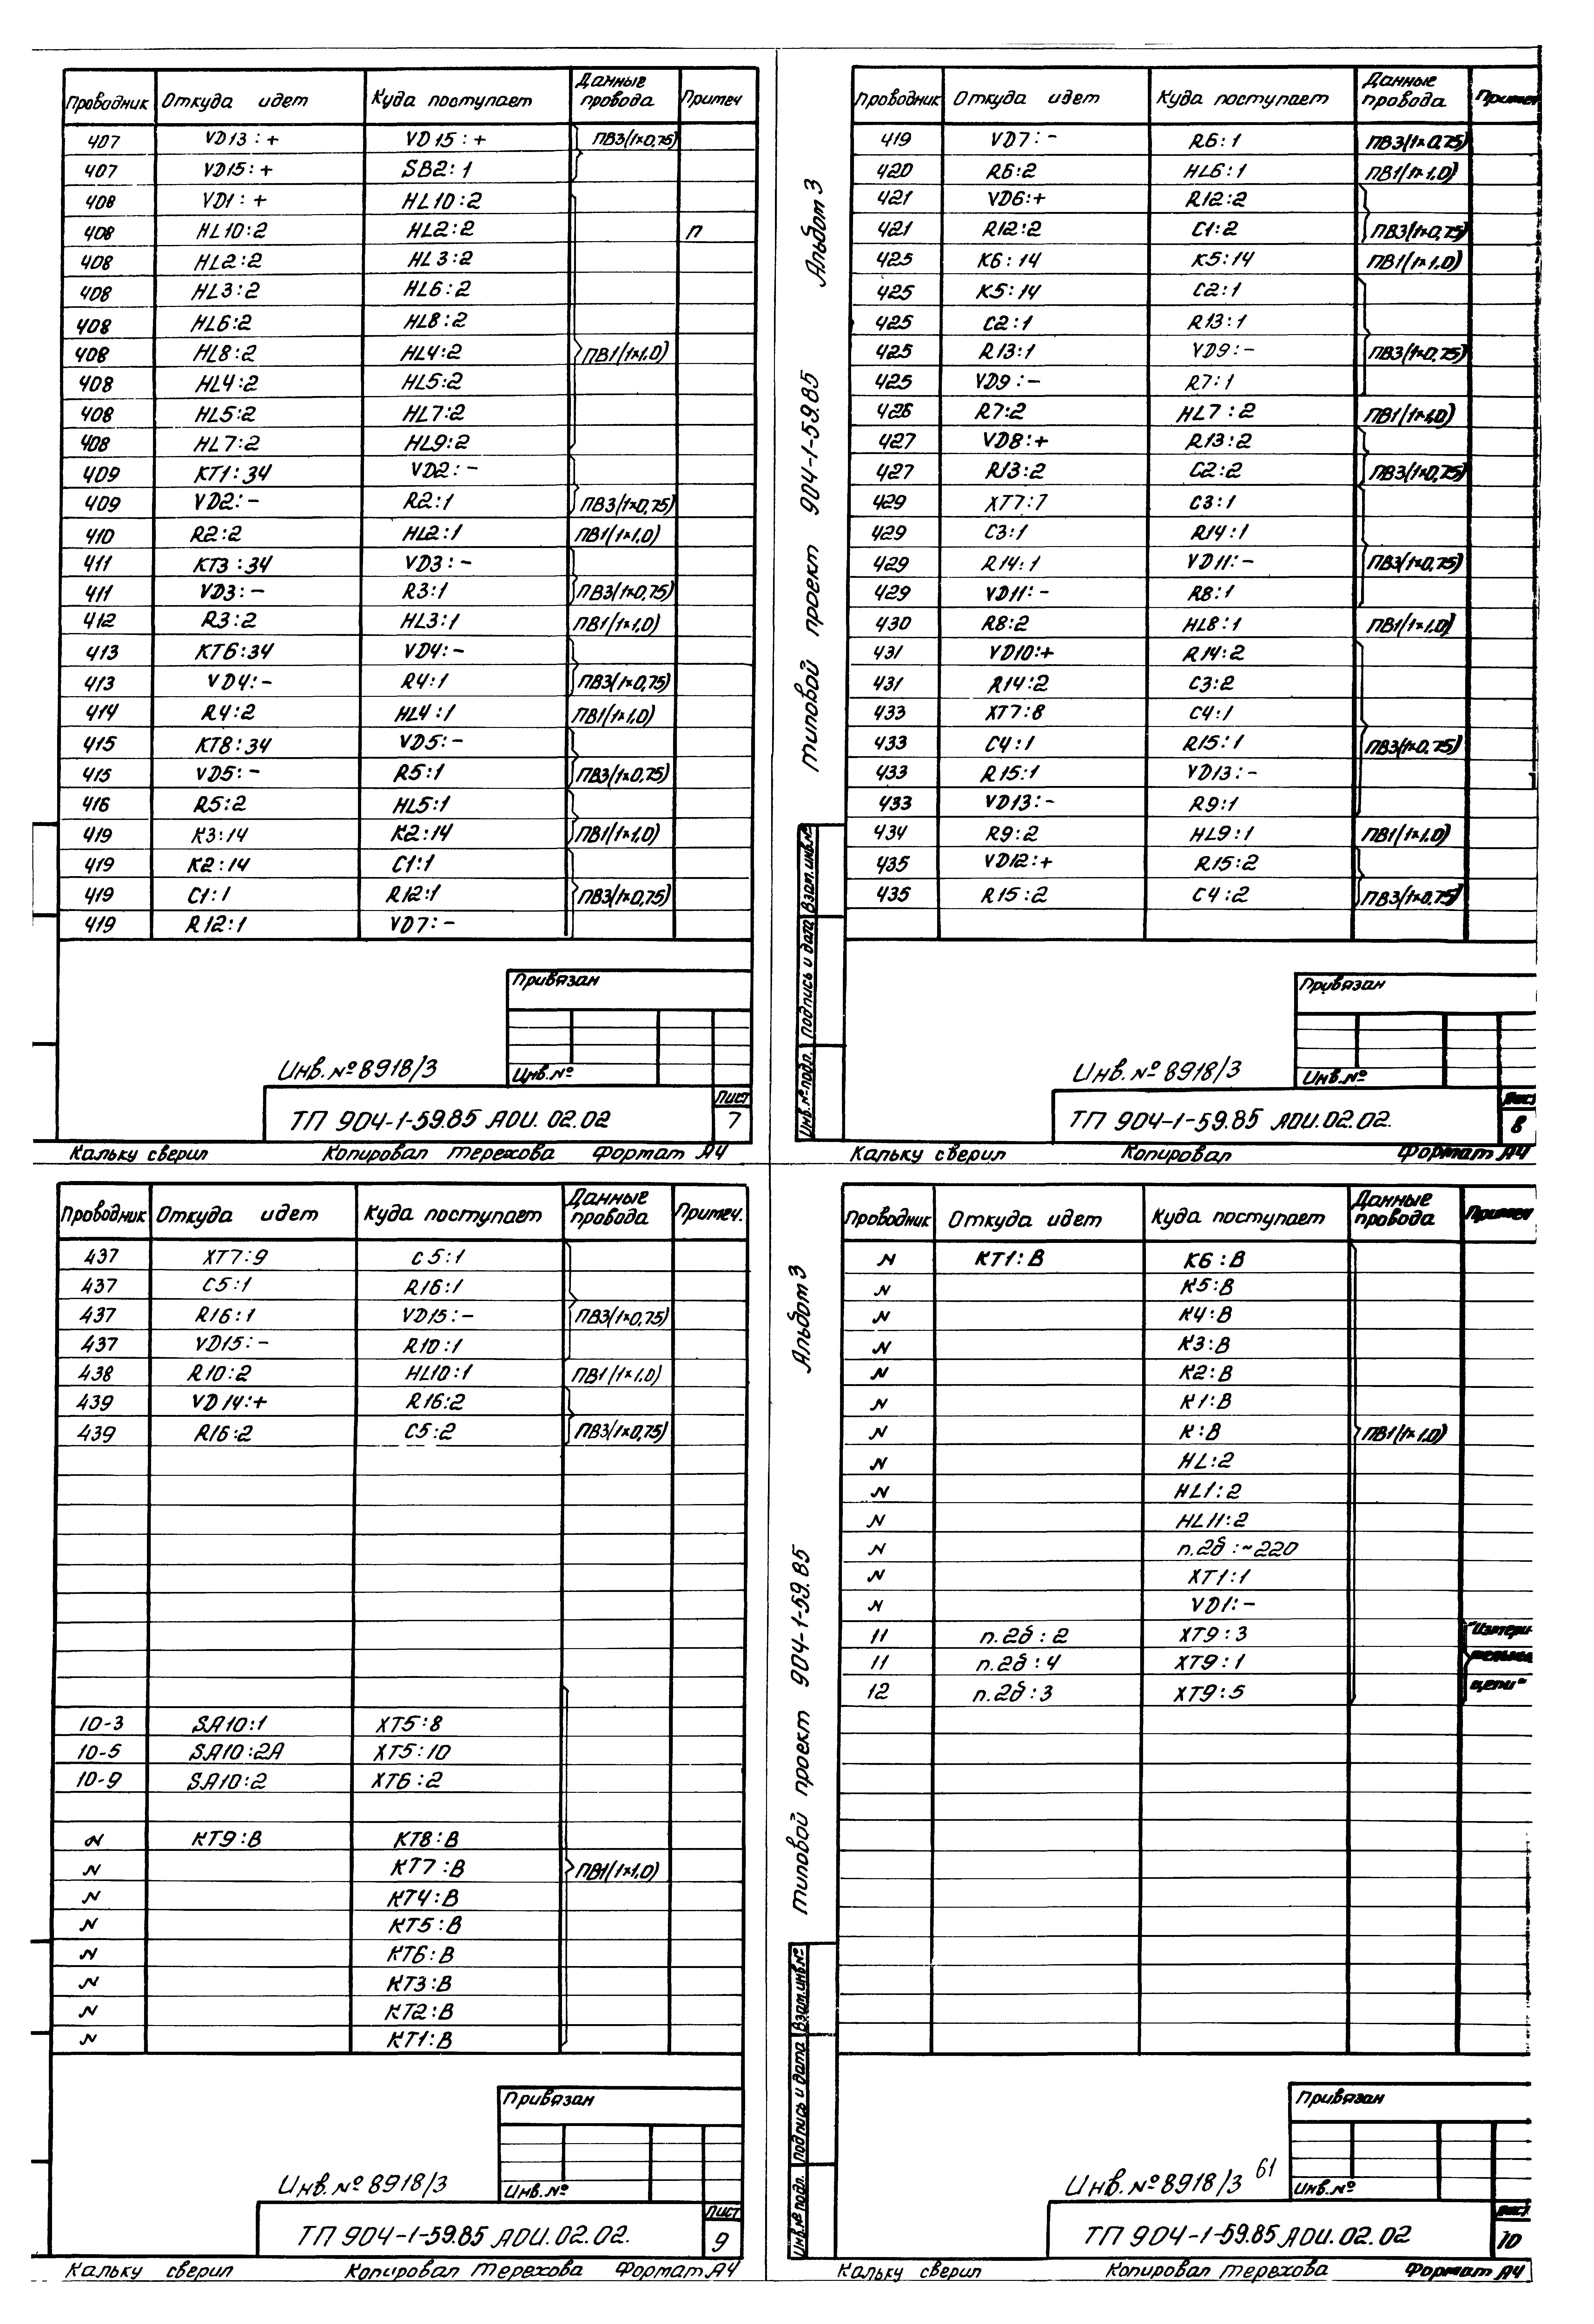 Проводник Откуда идет Куда поступает Данные провода Примеч
407 VD13:+ VD15:+ ПВ3(1×0,75)
407 VD15:+ SB2:1
408 VD1:+ HL10:2
408 HL10:2 HL2:2 п
408 HL2:2 HL3:2
408 HL3:2 HL6:2
408 HL6:2 HL8:2
408 HL8:2 HL4:2 ПВ1(1×1,0)
408 HL4:2 HL5:2
408 HL5:2 HL7:2
408 HL7:2 HL9:2
409 KT1:34 VD2:-
409 VD2:- R2:1 ПВ3(1×0,75)
410 R2:2 HL2:1 ПВ1(1×1,0)
411 KT3:34 VD3:-
411 VD3:- R3:1 ПВ3(1×0,75)
412 R3:2 HL3:1 ПВ1(1×1,0)
413 KT6:34 VD4:-
413 VD4:- R4:1 ПВ3(1×0,75)
414 R4:2 HL4:1 ПВ1(1×1,0)
415 KT8:34 VD5:-
415 VD5:- R5:1 ПВ3(1×0,75)
416 R5:2 HL5:1
419 K3:14 K2:14 ПВ1(1×1,0)
419 K2:14 C1:1
419 C1:1 R12:1 ПВ3(1×0,75)
419 R12:1 VD7:-
Привязан
Инв.№
Инв.№8918/3
Лист
ТП 904-1-59.85 АОИ.02.02 7
Кальку сверил Копировал Терехова Формат А4
Альбом 3
типовой проект 904-1-59.85
Взам.инв.№
Подпись и дата
Инв.№ подл.
Проводник Откуда идет Куда поступает Данные провода Примеч
419 VD7:- R6:1 ПВ3(1×0,75)
420 R6:2 HL6:1 ПВ1(1×1,0)
421 VD6:+ R12:2
421 R12:2 C1:2 ПВ3(1×0,75)
425 K6:14 K5:14 ПВ1(1×1,0)
425 K5:14 C2:1
425 C2:1 R13:1
425 R13:1 VD9:- ПВ3(1×0,75)
425 VD9:- R7:1
426 R7:2 HL7:2 ПВ1(1×1,0)
427 VD8:+ R13:2
427 R13:2 C2:2 ПВ3(1×0,75)
429 XT7:7 C3:1
429 C3:1 R14:1
429 R14:1 VD11:- ПВ3(1×0,75)
429 VD11:- R8:1
430 R8:2 HL8:1 ПВ1(1×1,0)
431 VD10:+ R14:2
431 R14:2 C3:2
433 XT7:8 C4:1
433 C4:1 R15:1 ПВ3(1×0,75)
433 R15:1 VD13:-
433 VD13:- R9:1
434 R9:2 HL9:1 ПВ1(1×1,0)
435 VD12:+ R15:2
435 R15:2 C4:2 ПВ3(1×0,75)
Привязан
Инв.№
Инв.№8918/3
Лист
ТП 904-1-59.85 АОИ.02.02. 8
Кальку сверил Копировал Формат А4
Проводник Откуда идет Куда поступает Данные провода Примеч.
437 XT7:9 C5:1
437 C5:1 R16:1
437 R16:1 VD15:- ПВ3(1×0,75)
437 VD15:- R10:1
438 R10:2 HL10:1 ПВ1(1×1,0)
439 VD14:+ R16:2
439 R16:2 C5:2 ПВ3(1×0,75)
10-3 SA10:1 XT5:8
10-5 SA10:2A XT5:10
10-9 SA10:2 XT6:2
N KT9:B KT8:B
N KT7:B ПВ1(1×1,0)
N KT4:B
N KT5:B
N KT6:B
N KT3:B
N KT2:B
N KT1:B
Привязан
Инв.№
Инв.№8918/3
Лист
ТП 904-1-59.85 АОИ.02.02. 9
Кальку сверил Копировал Терехова Формат А4
Альбом 3
типовой проект 904-1-59.85
Взам.инв.№
Подпись и дата
Инв.№ подл.
Проводник Откуда идет Куда поступает Данные провода Примеч
N KT1:B K6:B
N K5:B
N K4:B
N K3:B
N K2:B
N K1:B
N K:B ПВ1(1×1,0)
N HL:2
N HL1:2
N HL11:2
N п.2б:~220
N XT1:1
N VD1:-
11 п.2б:2 XT9:3 "Измери-
11 п.2б:4 XT9:1
12 п.2б:3 XT9:5 цепи"
Привязан
Инв.№
Инв.№8918/3 61
Лист
ТП 904-1-59.85 АОИ.02.02 10
Кальку сверил Копировал Терехова Формат А4